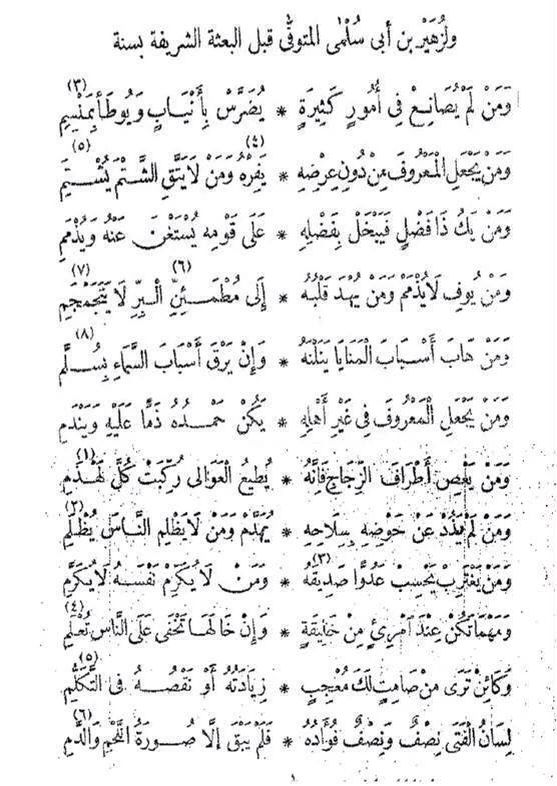 ولزُهَيْر بن أبى سُلْمٰى المتوفّى قبل البعثة الشريفة بسنة
وَمَنْ لَمْ يُصَانِعْ فِى أُمُورٍ كَثِيرَةٍ * يُضَرَّسْ بِأَنْيَابٍ وَيُوطَأْ بِمَنْسِمِ (٣)
وَمَنْ يَجْعَلِ الْمَعْرُوفَ مِنْ دُونِ عِرْضِهِ * يَفِرْهُ (٤) وَمَنْ لَا يَتَّقِ الشَّتْمَ يُشْتَمِ (٥)
وَمَنْ يَكُ ذَا فَضْلٍ فَيَبْخَلْ بِفَضْلِهِ * عَلَى قَوْمِهِ يُسْتَغْنَ عَنْهُ وَيُذْمَمِ
وَمَنْ يُوفِ لَا يُذْمَمْ وَمَنْ يُهْدَ قَلْبُهُ * إِلَى مُطْمَئِنِّ (٦) الْبِرِّ لَا يَتَجَمْجَمِ (٧)
وَمَنْ هَابَ أَسْبَابَ الْمَنَايَا يَنَلْنَهُ * وَإِنْ يَرْقَ أَسْبَابَ السَّمَاءِ بِسُلَّمِ (٨)
وَمَنْ يَجْعَلِ الْمَعْرُوفَ فِى غَيْرِ أَهْلِهِ * يَكُنْ حَمْدُهُ ذَمًّا عَلَيْهِ وَيَنْدَمِ
وَمَنْ يَعْصِ أَطْرَافَ الزِّجَاجِ فَإِنَّهُ * يُطِيعُ الْعَوَالِى رُكِّبَتْ كُلَّ لَهْذَمِ (١)
وَمَنْ لَمْ يَذُدْ عَنْ حَوْضِهِ بِسِلَاحِهِ * يُهَدَّمْ وَمَنْ لَا يَظْلِمِ النَّاسَ يُظْلَمِ (٢)
وَمَنْ يَغْتَرِبْ يَحْسِبْ عَدُوًّا صَدِيقَهُ (٣) * وَمَنْ لَا يُكَرِّمْ نَفْسَهُ لَا يُكَرَّمِ
وَمَهْمَا تَكُنْ عِنْدَ امْرِئٍ مِنْ خَلِيقَةٍ * وَإِنْ خَالَهَا تَخْفَى عَلَى النَّاسِ تُعْلَمِ (٤)
وَكَائِنْ تَرَى مِنْ صَامِتٍ لَكَ مُعْجِبٍ * زِيَادَتُهُ أَوْ نَقْصُهُ فِى التَّكَلُّمِ (٥)
لِسَانُ الْفَتَى نِصْفٌ وَنِصْفٌ فُؤَادُهُ * فَلَمْ يَبْقَ إِلَّا صُورَةُ اللَّحْمِ وَالدَّمِ (٦)